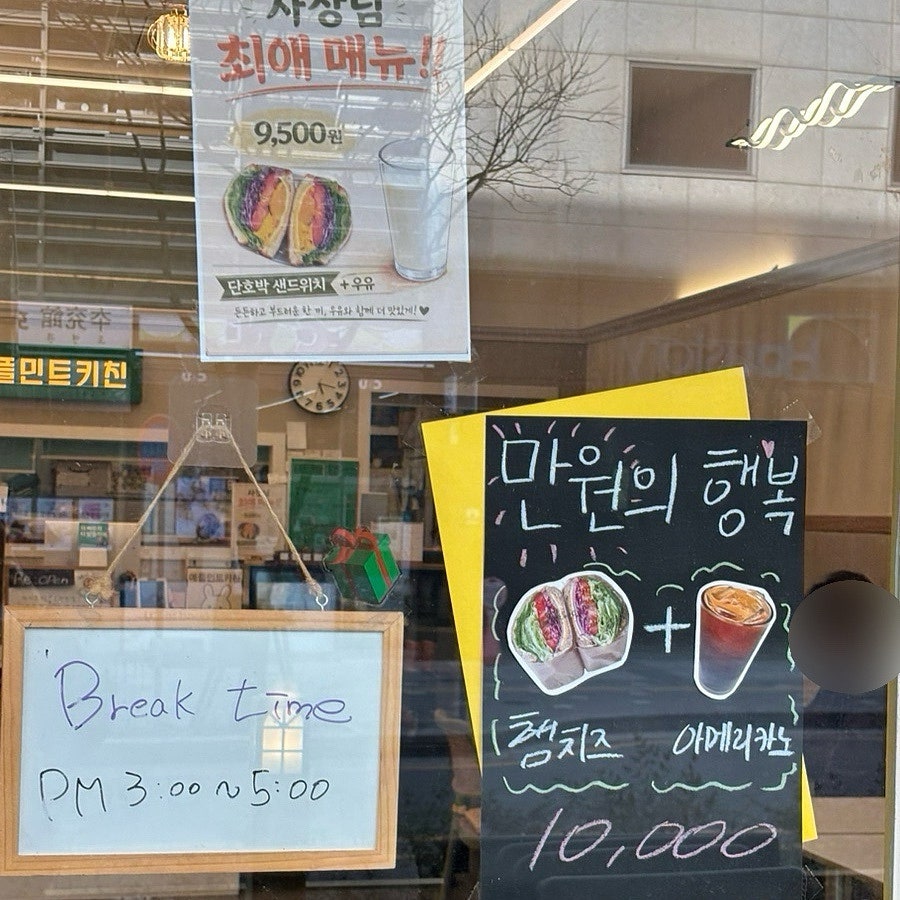 사장님
최애 메뉴!!
9,500원
단호박 샌드위치 +우유
든든하고 부드러운 한 끼, 우유와 함께 더 맛있게! ♥
플민트키친
만원의 행복
+
햄치즈 아메리카노
10,000
Break time
PM 3:00 ~ 5:00